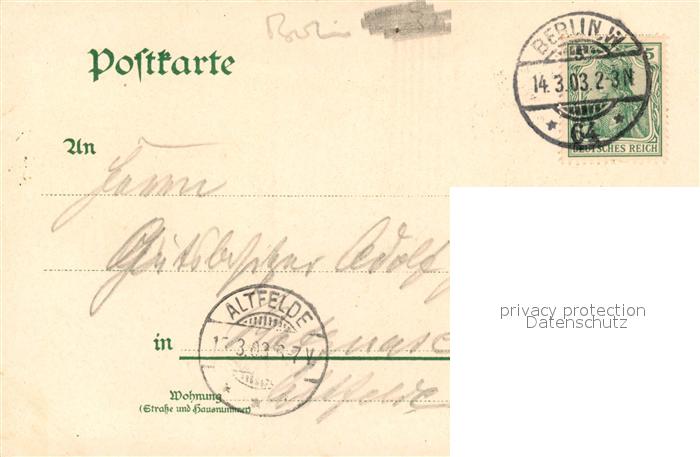 Berlin
Postkarte
BERLIN.W.
14.3.03.2-3N
64
5
DEUTSCHES REICH
An
Herrn
Gutsbesitzer Adolf
privacy protection
Datenschutz
ALTFELDE
.3.03.6-7V
in
Altfelde
Wohnung
(Straße und Hausnummer)